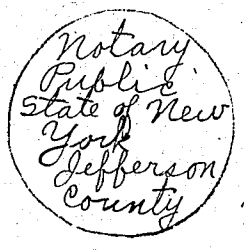 Notary
Public
State of New
York
Jefferson
County